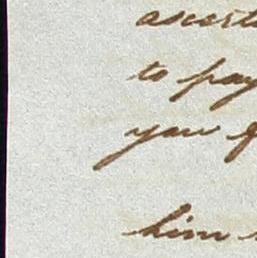 ascert
to pay
you
him